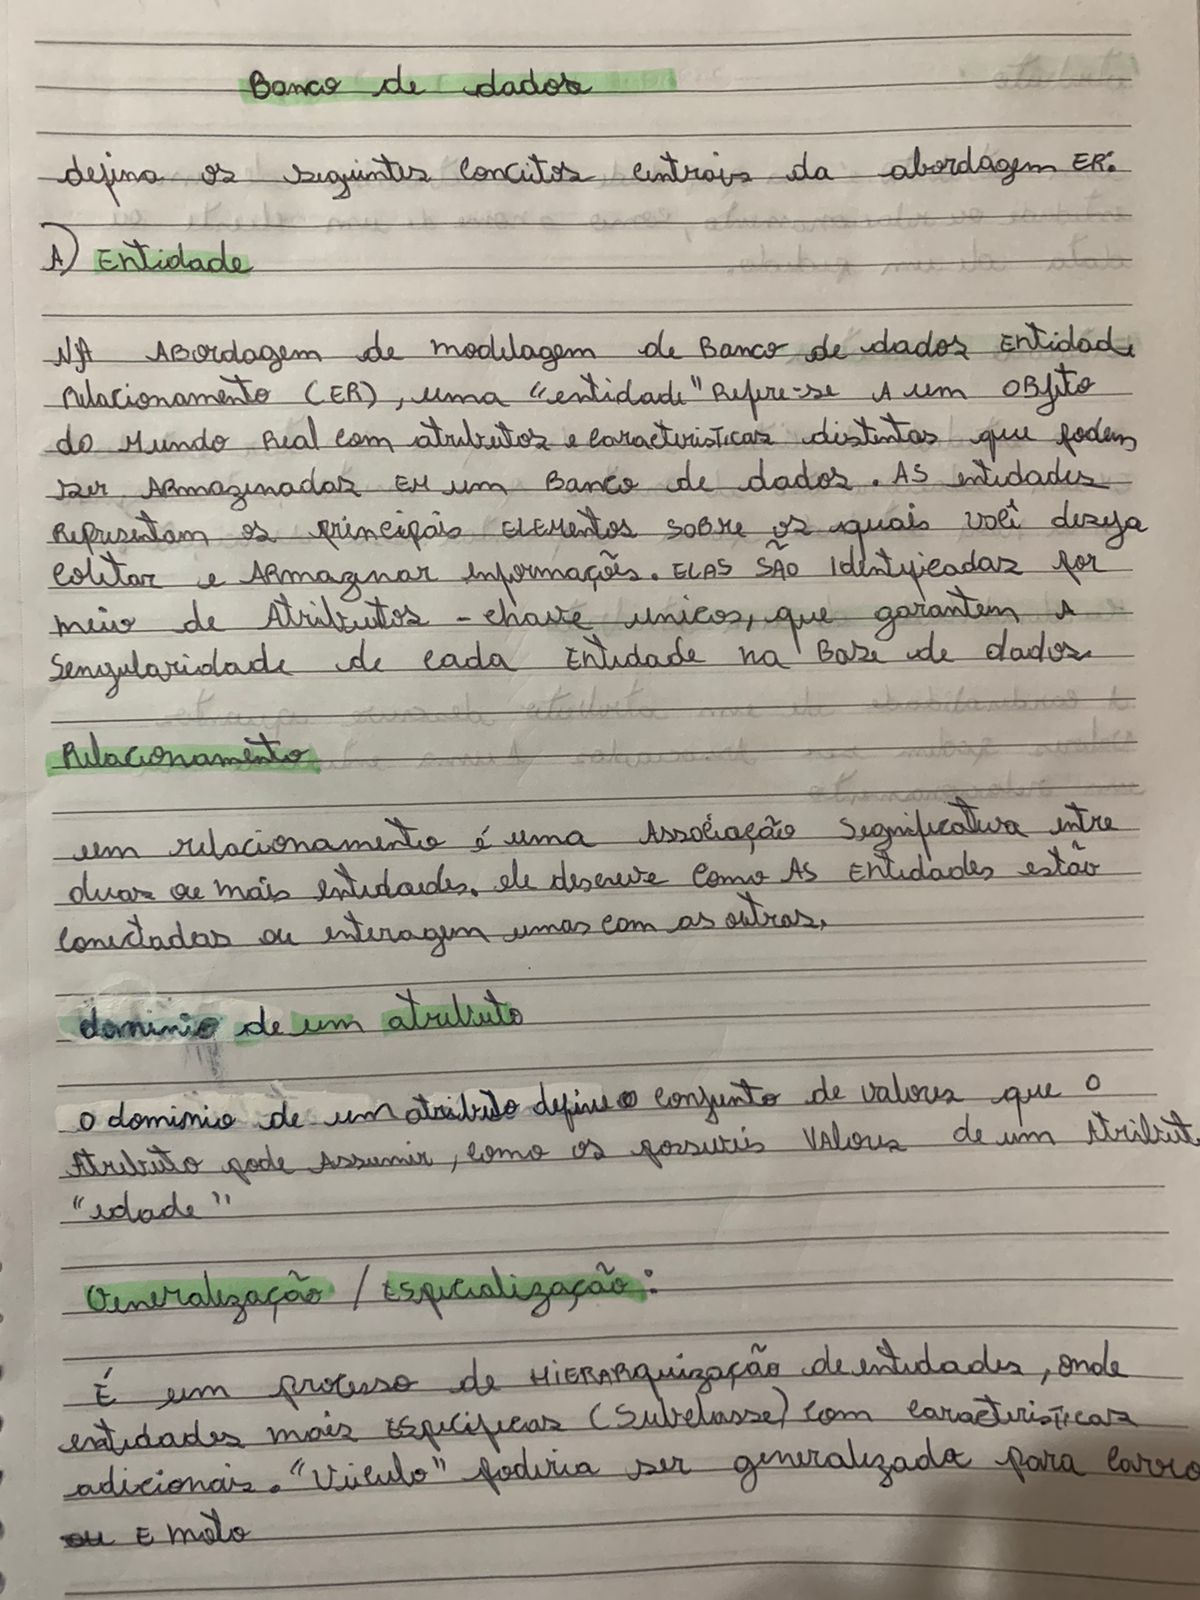 Banco de dados
defina os seguintes conceitos centrais da abordagem ER:
A) Entidade
NA ABordagem de modelagem de Banco de dados Entidade
Relacionamento (ER), uma "entidade" Refere-se A um OBjeto
do Mundo Real com atributos e características distintas que podem
ser ARmazenadas EM um Banco de dados. AS entidades
Representam os principais ELEMENTOS SOBRE os quais você deseja
coletar e ARmazenar informações. ELAS SÃO Identificadas por
meio de Atributos - chave unicos, que garantem A
Sengularidade de cada Entidade na Base de dados.
Relacionamento
um relacionamento é uma Associação Segnificativa entre
duas ou mais entidades. ele descreve como AS Entidades estão
conectadas ou enteragem umas com as outras.
dominio de um atributo
O dominio de um atributo define o conjunto de valores que o
Atributo pode Assumir, como os possiveis VAlores de um Atribut
"idade"
Generalização / ESpecialização:
É um processo de HiERARquização de entidades, onde
entidades mais ESpecificas (Subclasse) com características
adicionais. "Veículo" poderia ser generalizada para carro
ou E moto